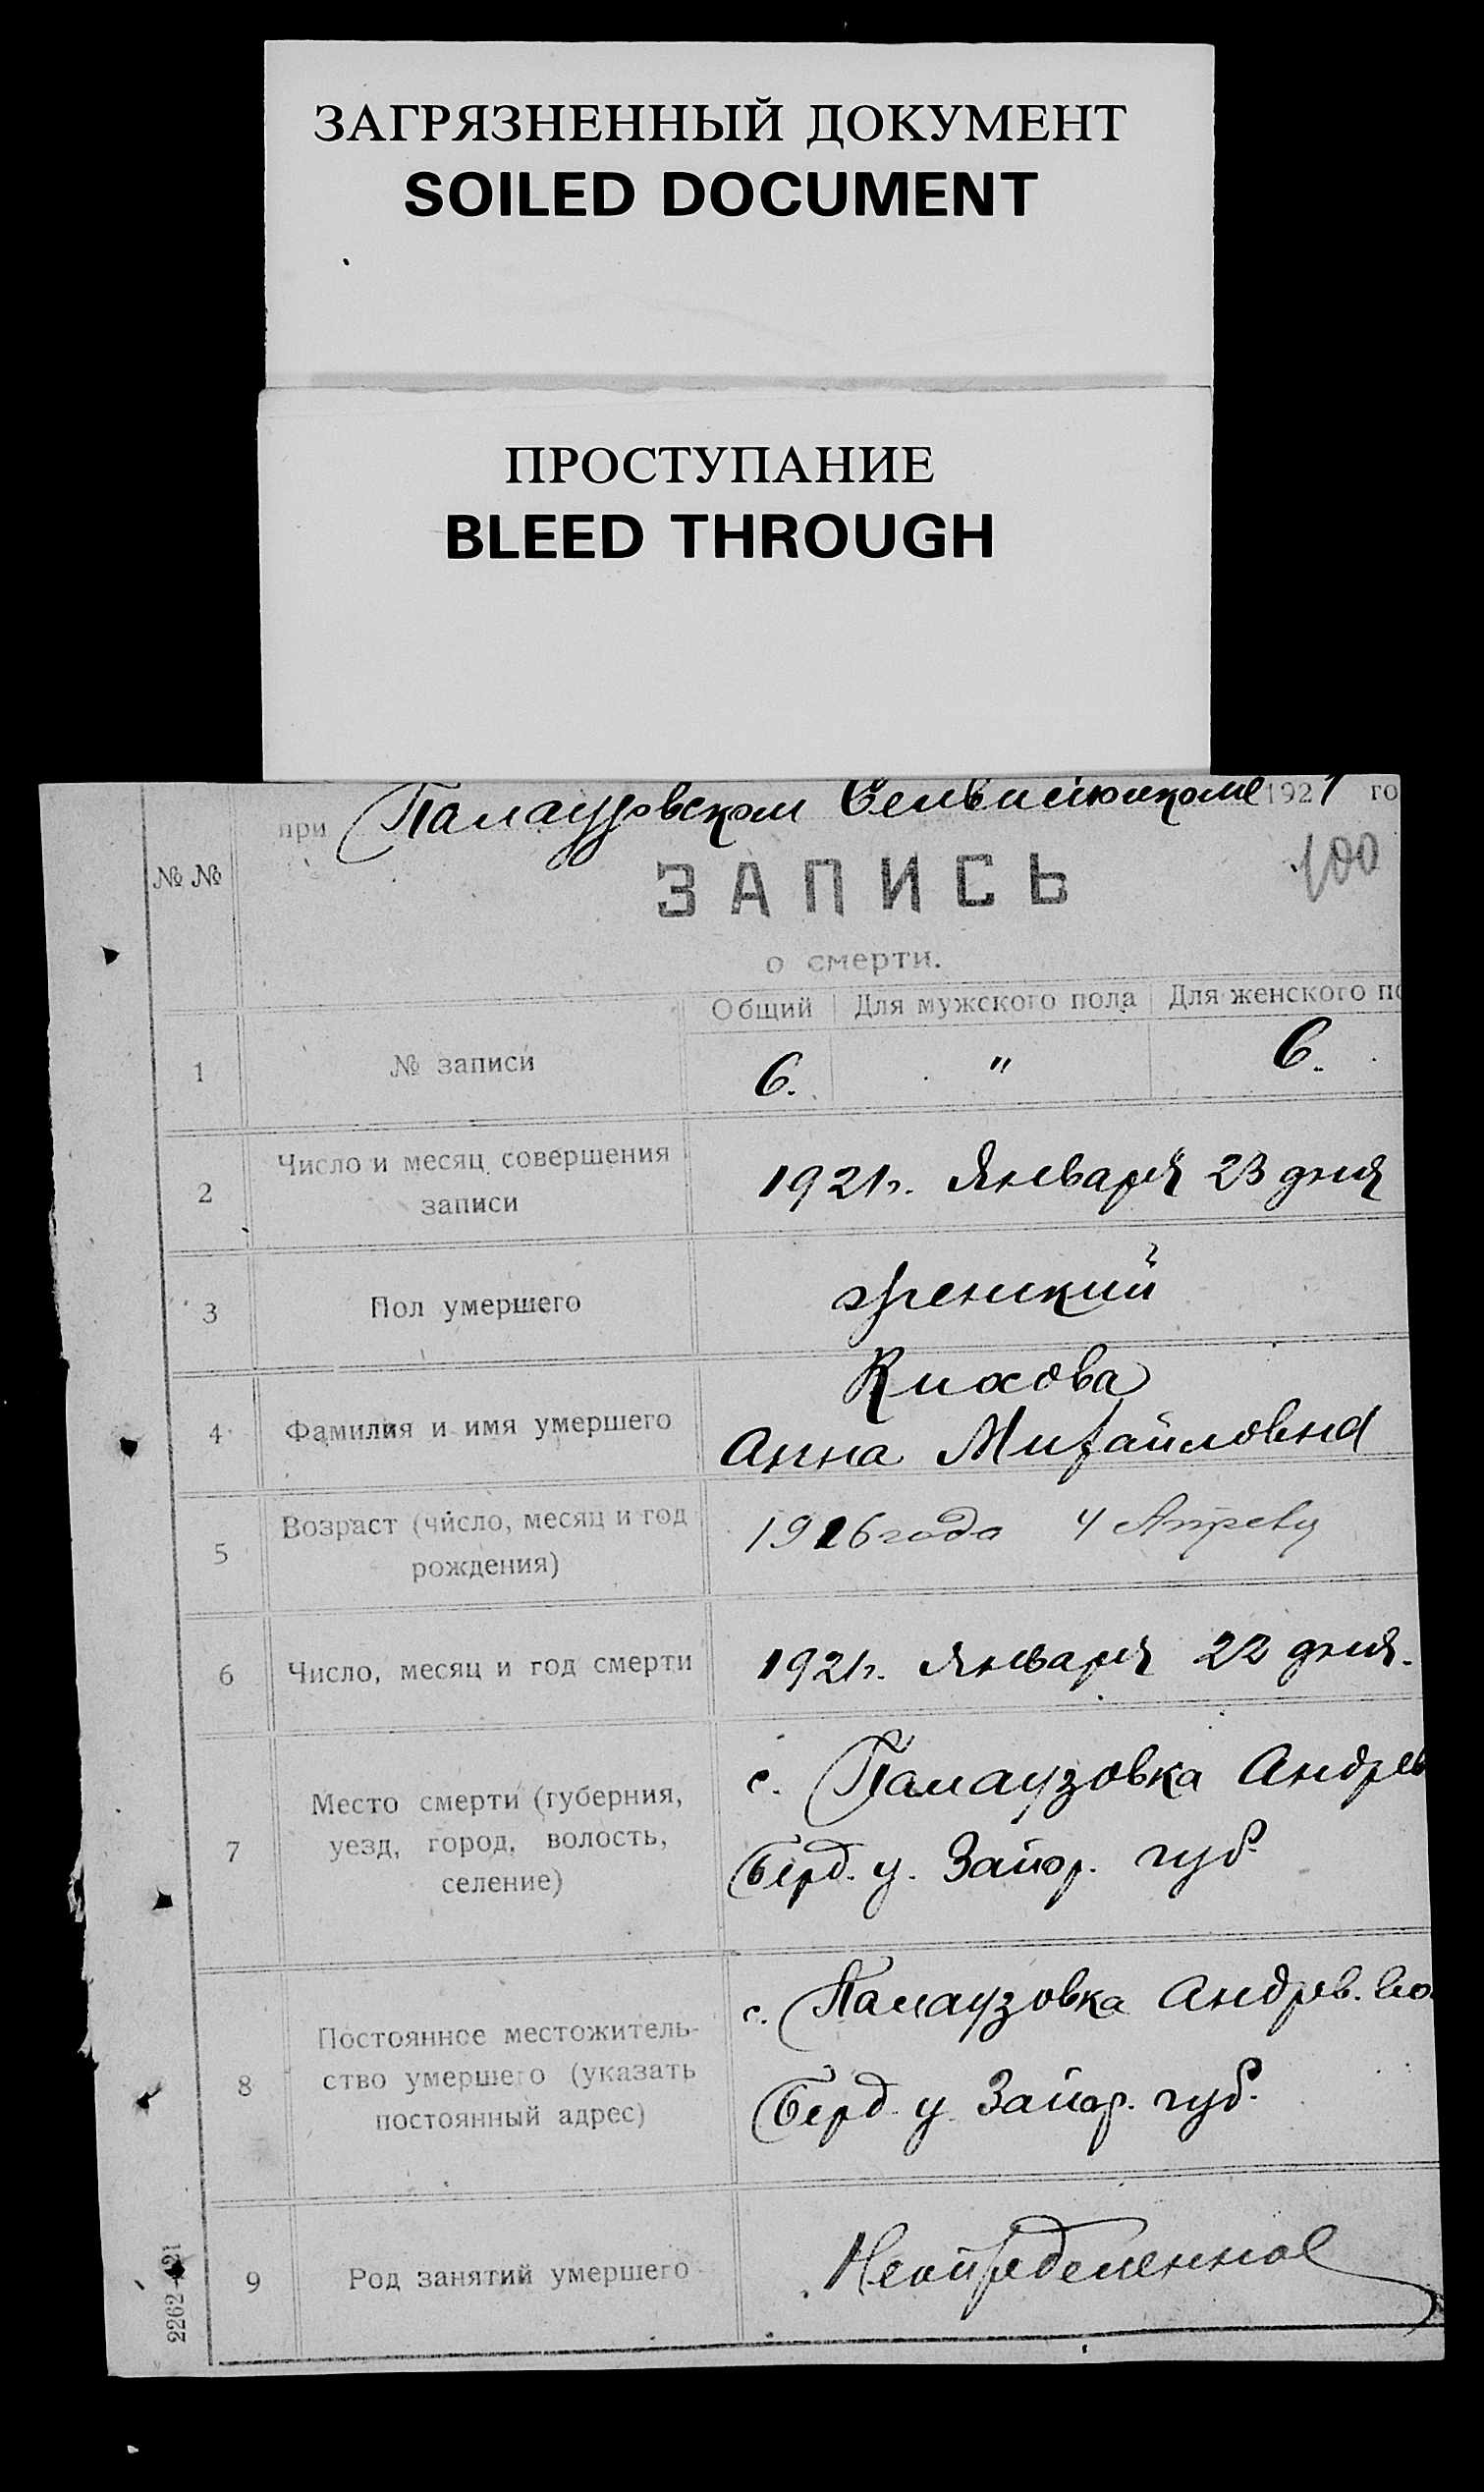 ЗАГРЯЗНЕННЫЙ ДОКУМЕНТ
SOILED DOCUMENT
ПРОСТУПАНИЕ
BLEED THROUGH
при Палаузовском 1921 го
№ №
100
ЗАПИСЬ
о смерти.
Общий Для мужского пола Для женского по
1 № записи 6. " 6.
2 Число и месяц совершения
записи
1921г. Января 23 дня
3 Пол умершего женский
4 Фамилия и имя умершего
Кихова
Анна Михайловна
5 Возраст (число, месяц и год
рождения)
1916 года 4
6 Число, месяц и год смерти 1921г. Января 22 дня.
7 Место смерти (губерния,
уезд, город, волость,
селение)
с. Палаузовка Андрев
Берд. у. Запор. губ.
8 Постоянное местожитель-
ство умершего (указать
постоянный адрес)
с. Палаузовка Андрев. Во.
Берд. у. Запор. губ.
9 Род занятий умершего Неопределенное